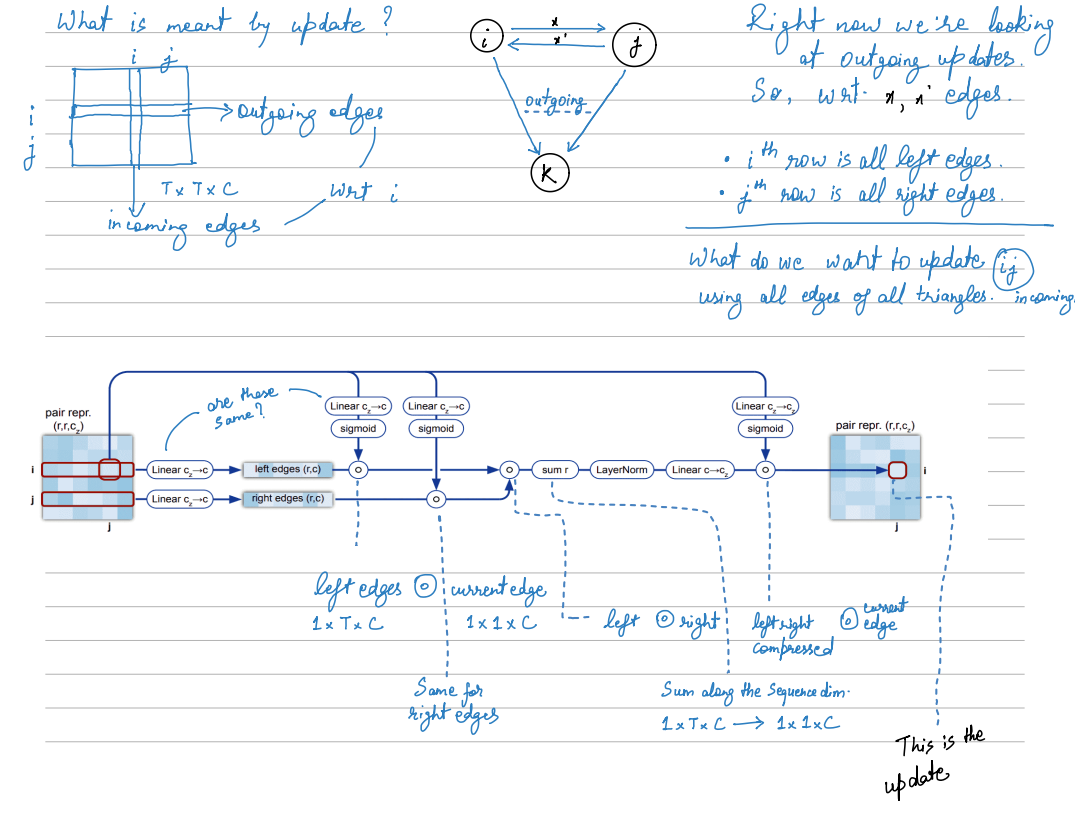 What is meant by update ?
i j
i
j
outgoing edges
T x T x C
wrt i
incoming edges
i
x
x'
j
outgoing
K
Right now we're looking
at outgoing updates.
So, wrt. x, x' edges.
• i th row is all left edges.
• j th row is all right edges.
What do we want to update ij
using all edges of all triangles. incoming
are these
same?
pair repr.
(r,r,c_z)
i
j
j
Linear c_z→c
Linear c_z→c
left edges (r,c)
right edges (r,c)
Linear c_z→c
sigmoid
Linear c_z→c
sigmoid
sum r
LayerNorm
Linear c→c_z
Linear c_z→c_z
sigmoid
pair repr. (r,r,c_z)
i
j
left edges ⊙ current edge
1 x T x C 1 x 1 x C
Same for
right edges
left ⊙ right
left right ⊙ current edge
compressed
Sum along the sequence dim.
1 x T x C → 1 x 1 x C
This is the
update